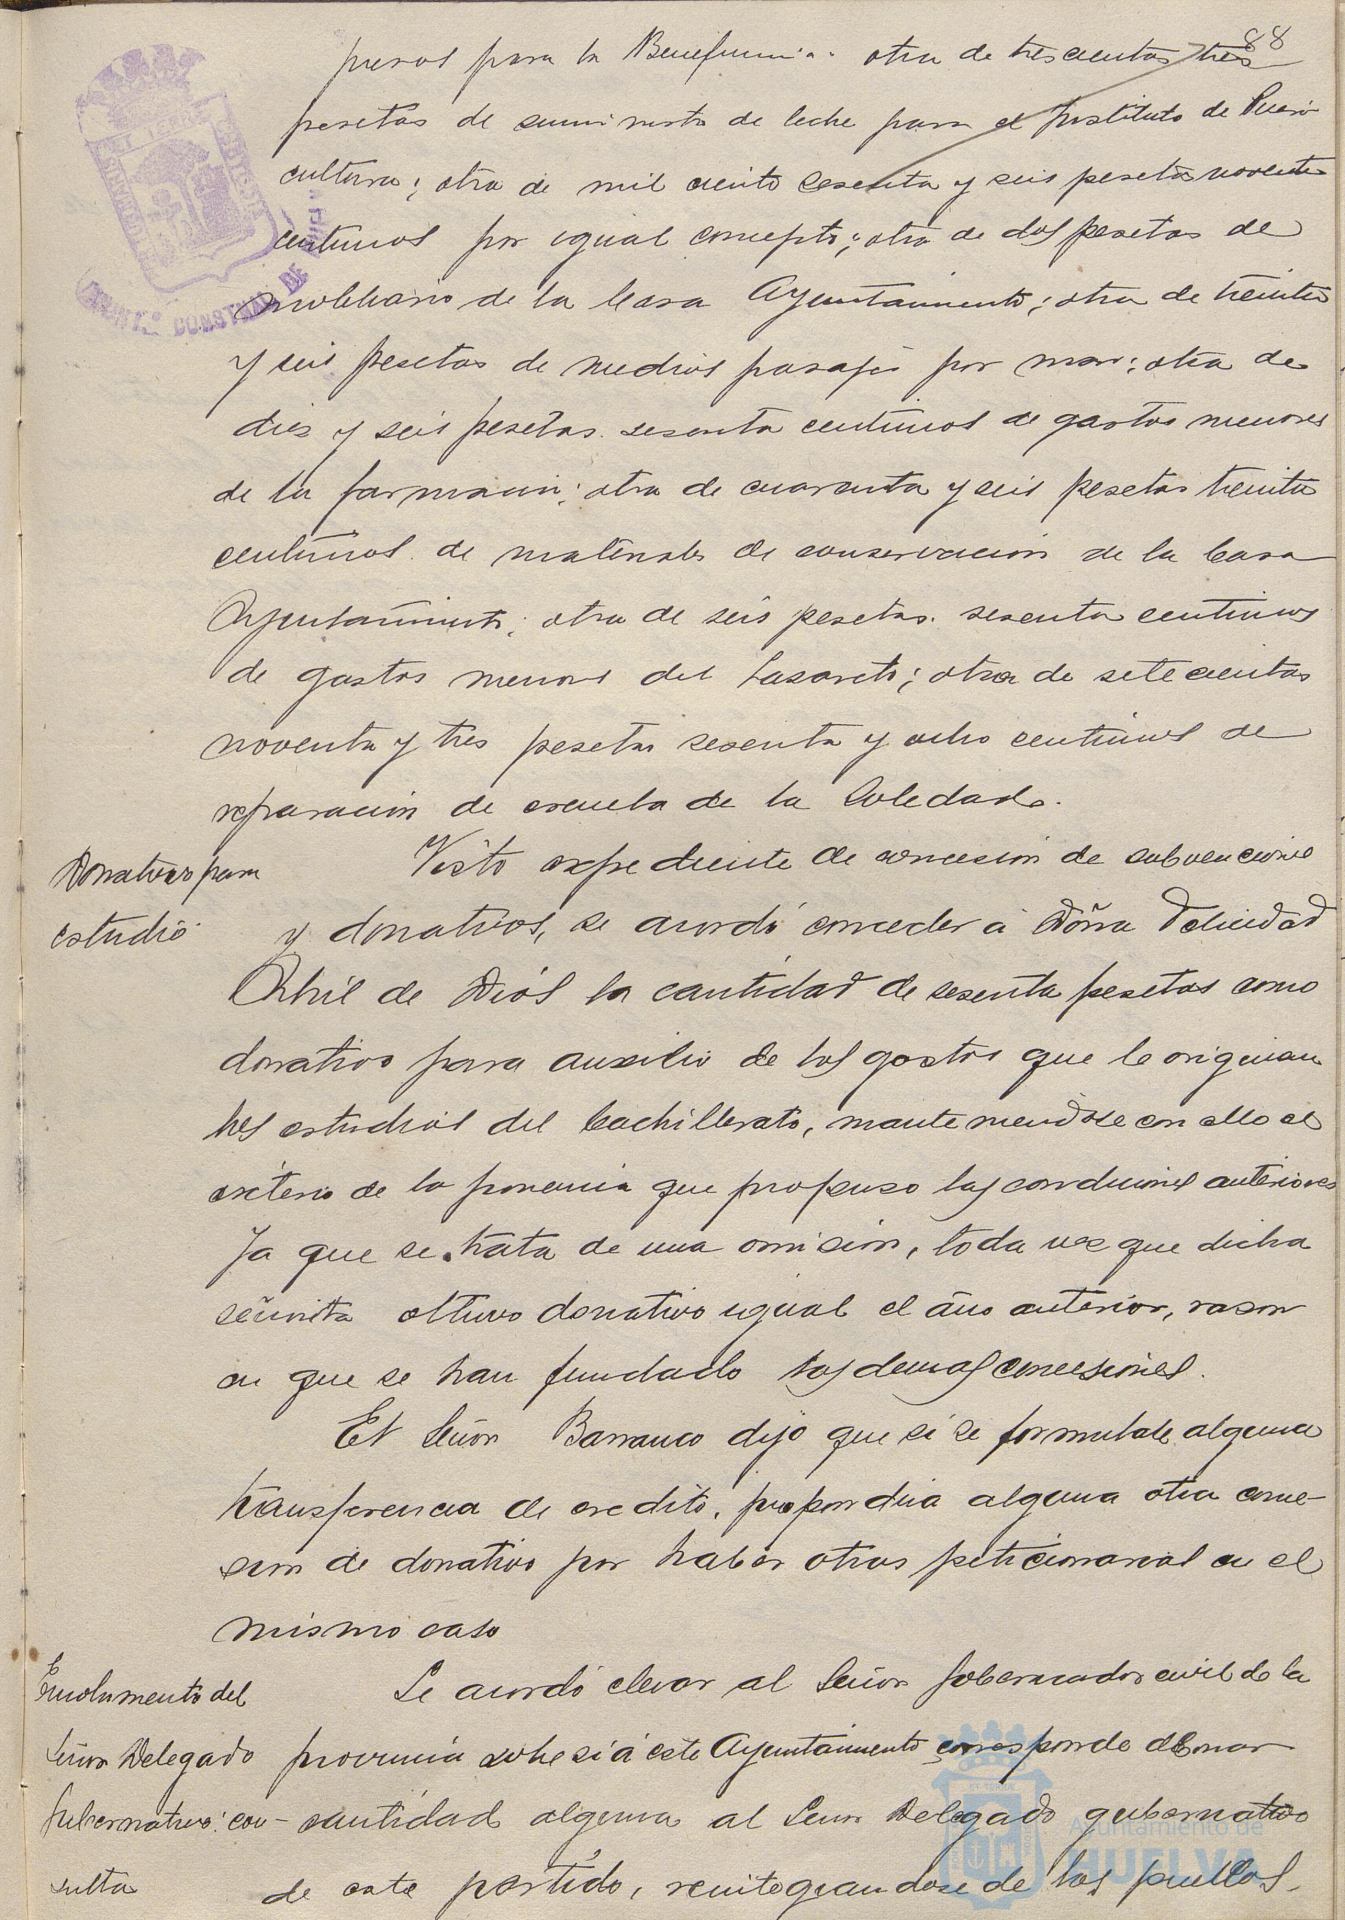 88
para la Beneficencia. otra de trescientas tres
pesetas de suministro de leche para el Instituto de Pueri-
cultura; otra de mil ciento sesenta y seis pesetas noventa
centimos por igual concepto; otra de dos pesetas de
mobiliario de la Casa Ayuntamiento; otra de treinta
y seis pesetas de medios pasajes por mar; otra de
diez y seis pesetas sesenta centimos de gastos menores
de la farmacia; otra de cuarenta y seis pesetas treinta
centimos de materiales de conservacion de la Casa
Ayuntamiento; otra de seis pesetas sesenta centimos
de gastos menores del Lazareto; otra de setecientas
noventa y tres pesetas sesenta y ocho centimos de
reparacion de escuela de la Soledad.
Donativo para
estudio.
Visto expediente de concesion de subvenciones
y donativos, se acordó conceder á Doña Felicidad
Abril de Dios la cantidad de sesenta pesetas como
donativo para auxilio de los gastos que le originan
los estudios del Bachillerato, manteniendose con ello el
criterio de la ponencia que propuso las concesiones anteriores
ya que se trata de una omision, toda vez que dicha
señorita obtuvo donativo igual el año anterior, razon
en que se han fundado las demas concesiones.
El Señor Barranco dijo que si se formulase alguna
transferencia de credito, propondria alguna otra conce-
sion de donativo por haber otros peticionarios en el
mismo caso
Emolumento del
Señor Delegado
gubernativo: con-
sulta
Se acordó elevar al Señor Gobernador civil de la
provincia sobre si á este Ayuntamiento corresponde abonar
cantidad alguna al Señor Delegado gubernativo
de este partido, reintegrandose de los pueblos,
AYUNTº CONSTNAL DE HUELVA
Ayuntamiento de
HUELVA